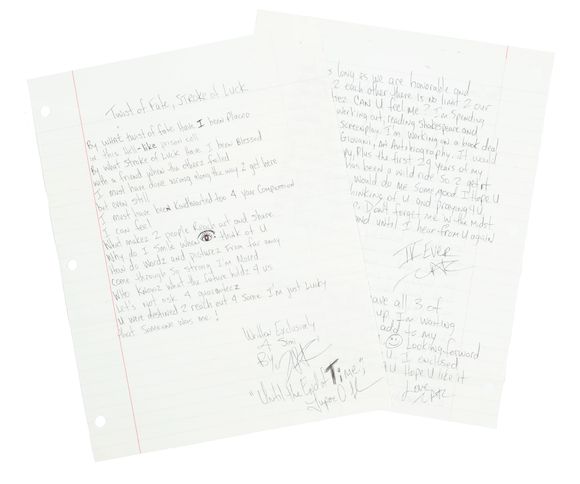 Twist of Fate, Stroke of Luck
By what twist of fate have I been placed
in this Hell-like prison cell
By what stroke of luck have I been Blessed
with a friend when the others failed
I must have done wrong along the way 2 get here
But even still
I must have been Kindhearted too 4 your Compassion
I can feel
What makez 2 people Reach out and share
Why do I smile when 👁 think of U
How do Wordz and picturez From far away
come through so strong I'm Moved
Who Knowz what the future holdz 4 us
Let's not ask 4 guaranteez
U were destined 2 reach out 4 some I'm just Lucky
that someone was me!
Written Exclusively
4 Simi
By
"Until the End of Time"
Tupac
s long as we are honorable and
2 each other there is no limit 2 our
CAN U feel me? I'm Spending
working out, reading Shakespeare and
screenplay. I'm working on a book deal
Giovani, an Autobiography. It would
py, Plus the first 24 years of my
has been a wild ride So 2 get it
would do me some good I hope U
thinking of U and praying 4 U
Don't forget me in the most
and until I hear from U again
4 EVER
ave all 3 of
up I'm waiting
add to my
☺ Looking forward
U. I enclosed
4 U Hope U like it
Love